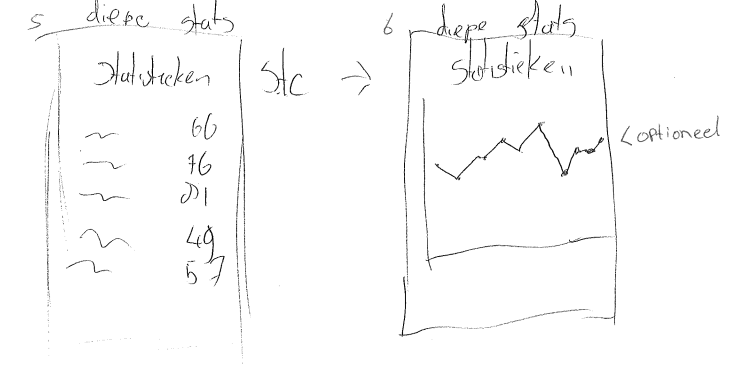 5 diepe stats
Statistieken
66
76
81
49
57
Stc →
6 diepe stats
Statistieken
< optioneel